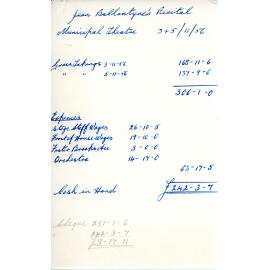 Jean Ballantyne's Recital
Municipal Theatre 3+5/11/56
Gross Takings 3-11-56 168-11-6
" " 5-11-56 137-9-6
306-1-0
Expenses
Stge Staff Wages 26-10-5
Front of House Wages 19-10-0
3-0-0
Orchestra 14-17-0
63-17-5
Cash in Hand £242-3-7
Cheque 251-1-6
242-3-7
£8-17-11